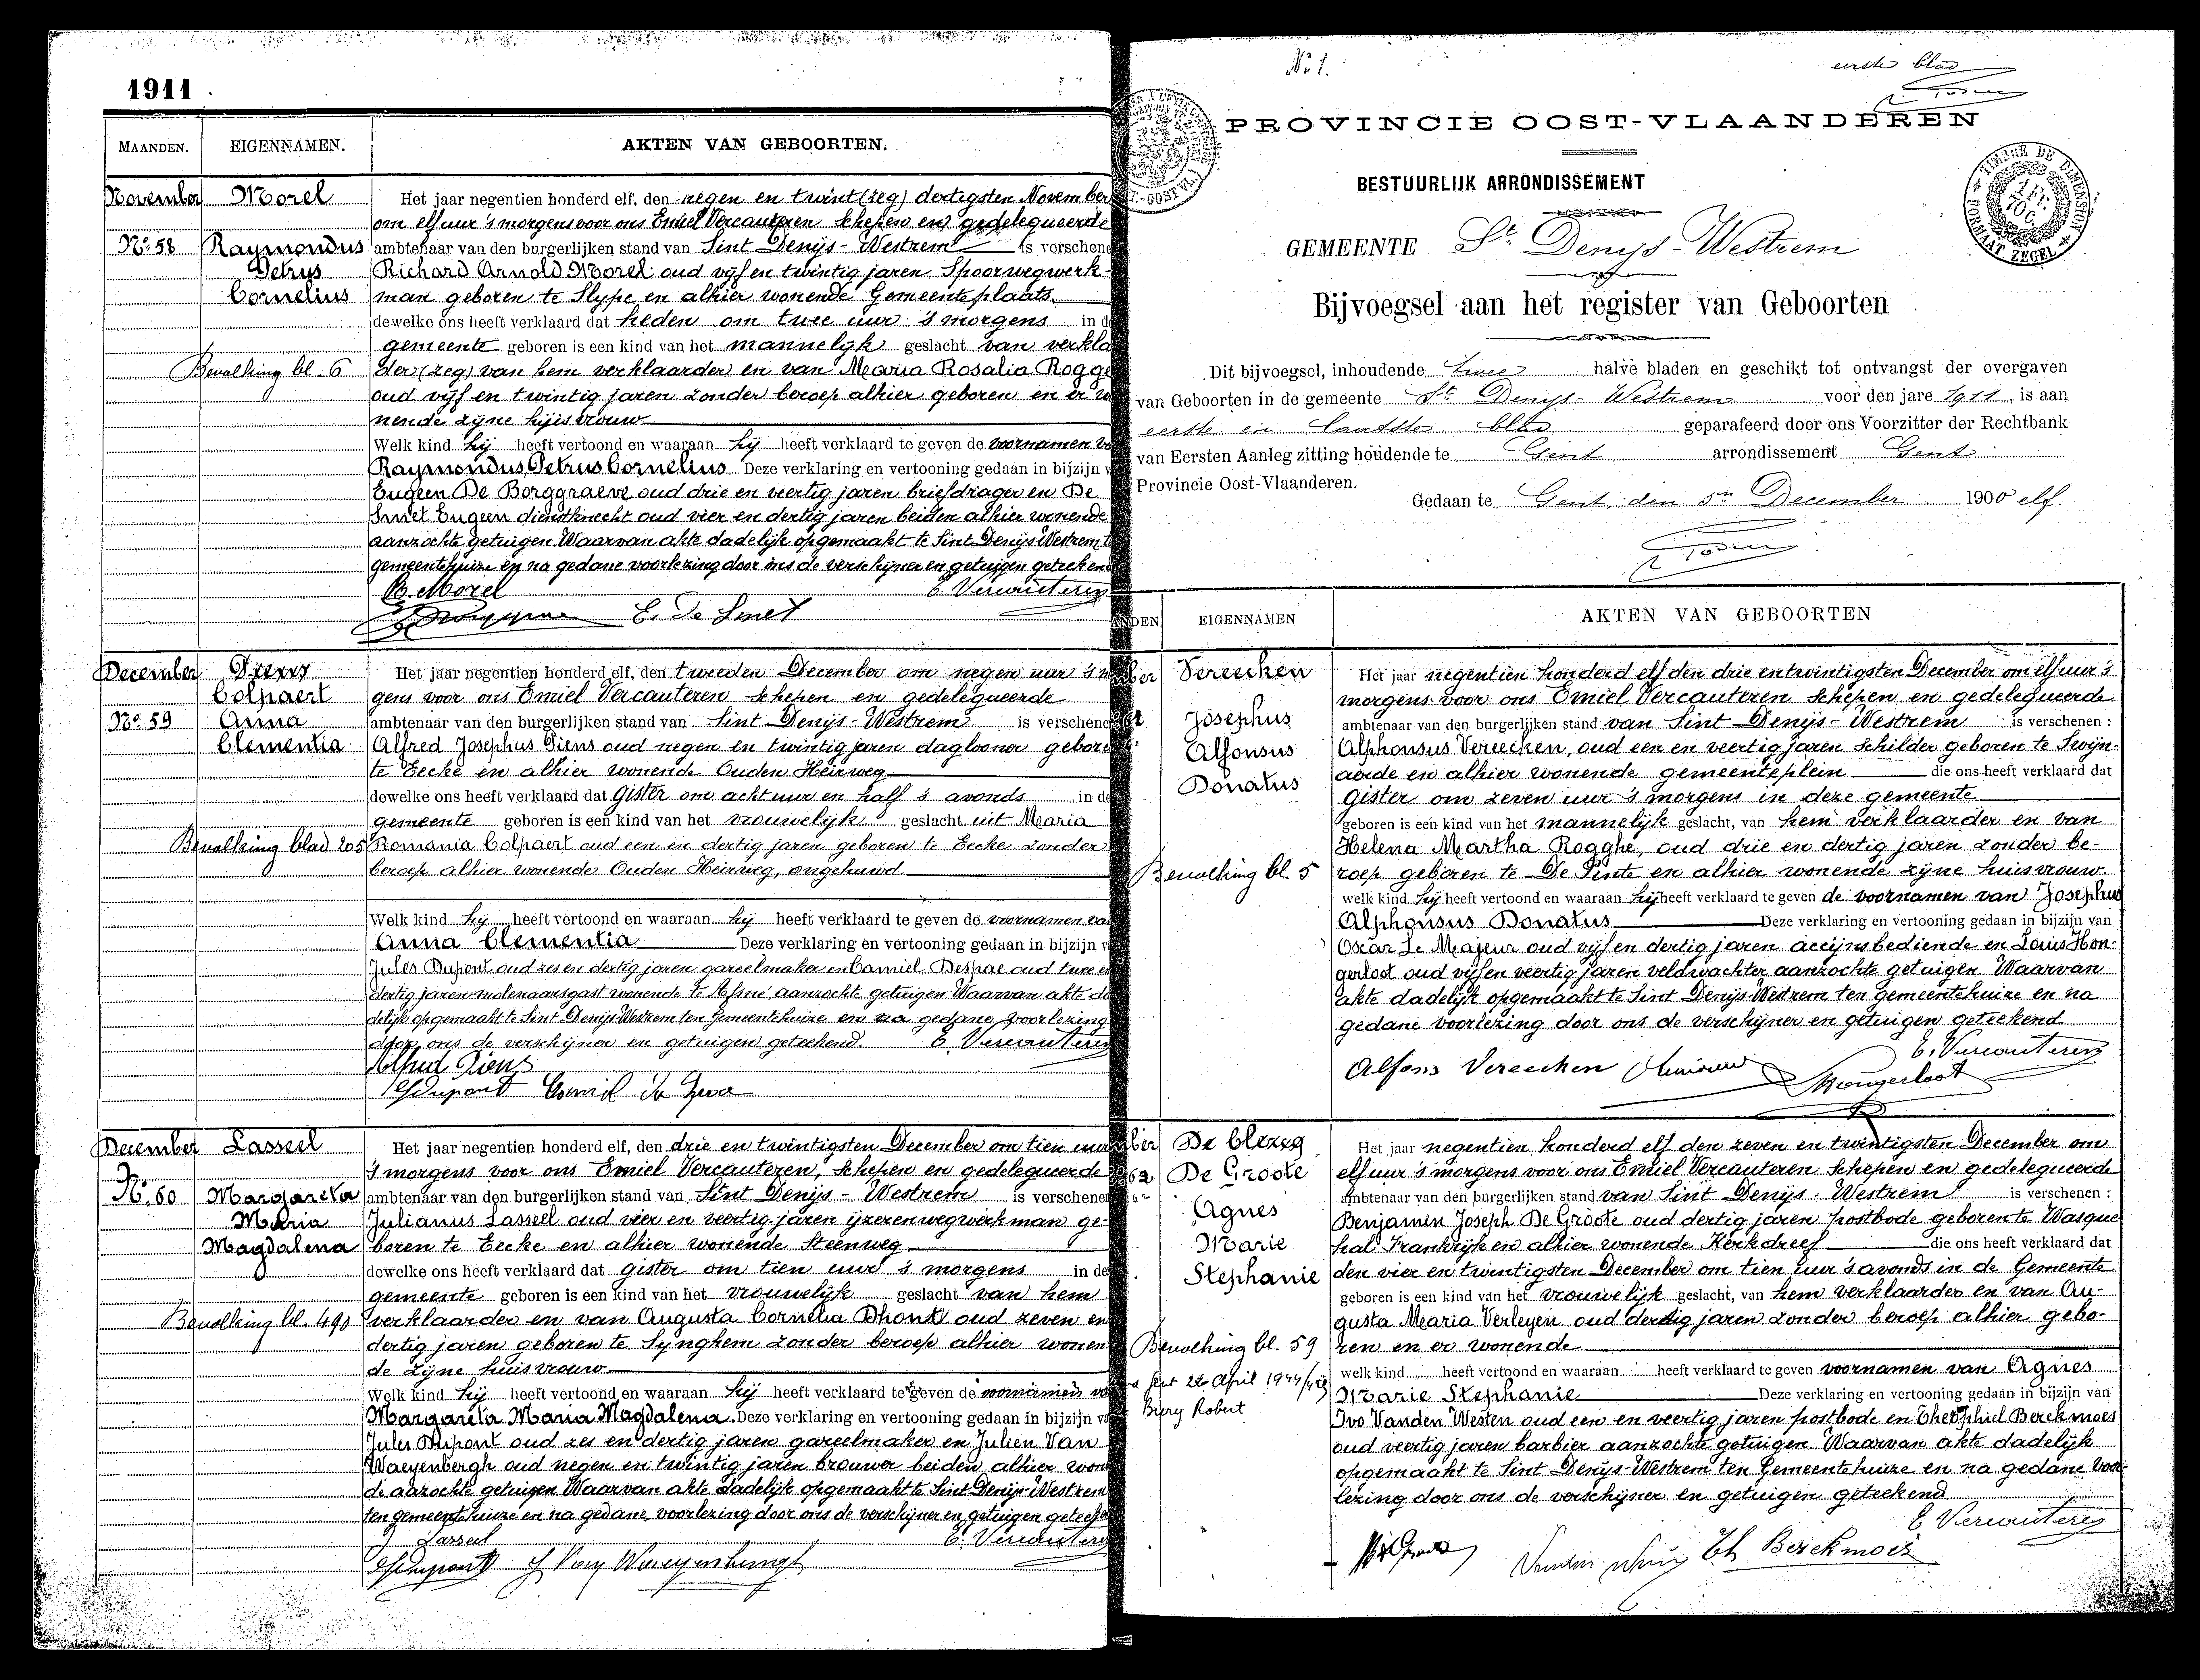 1911
MAANDEN. EIGENNAMEN. AKTEN VAN GEBOORTEN.
November
Morel
No. 58
Raymondus
Petrus
Cornelius
Bevolking bl. 6
Het jaar negentien honderd elf, den negen en twint (zeg) dertigsten November
om elf uur 's morgens voor ons Emiel Vercauteren schepen en gedelegueerde
ambtenaar van den burgerlijken stand van Sint Denijs-Westrem is verschene
Richard Arnold Morel oud vijf en twintig jaren Spoorwegwerk-
man geboren te Slype en alhier wonende Gemeenteplaats
dewelke ons heeft verklaard dat heden om twee uur 's morgens in de
gemeente geboren is een kind van het mannelijk geslacht van verkla
der (zeg) van hem verklaarder en van Maria Rosalia Rogge
oud vijf en twintig jaren zonder beroep alhier geboren en er wo
nende zijne huisvrouw
Welk kind hij heeft vertoond en waaraan hij heeft verklaard te geven de voornamen va
Raymondus Petrus Cornelius Deze verklaring en vertooning gedaan in bijzijn v
Eugeen De Borggraeve oud drie en veertig jaren briefdrager en De
Smet Eugeen dienstknecht oud vier en dertig jaren beiden alhier wonende
aanzochte getuigen. Waarvan akte dadelijk opgemaakt te Sint Denijs Westrem t
gemeentehuize en na gedane voorlezing door ons de verschijner en getuigen geteekend
R. Morel E. Vercauteren
E. De Smet
December
Piens
Colpaert
No. 59
Anna
Clementia
Bevolking blad 205
Het jaar negentien honderd elf, den tweeden December om negen uur 's m
gens voor ons Emiel Vercauteren schepen en gedelegueerde
ambtenaar van den burgerlijken stand van Sint Denijs-Westrem is verschene
Alfred Josephus Piens oud negen en twintig jaren daglooner gebore
te Eecke en alhier wonende Ouden Heirweg
dewelke ons heeft verklaard dat gister om acht uur en half 's avonds in de
gemeente geboren is een kind van het vrouwelijk geslacht uit Maria
Romania Colpaert oud een en dertig jaren geboren te Eecke zonder
beroep alhier wonende Ouden Heirweg, ongehuwd
Welk kind hij heeft vertoond en waaraan hij heeft verklaard te geven de voornamen va
Anna Clementia Deze verklaring en vertooning gedaan in bijzijn v
Jules Dupont oud zes en dertig jaren gareelmaker en Camiel Despae oud twee en
dertig jaren molenaarsgast wonende te Afsné aanzochte getuigen Waarvan akte da
delijk opgemaakt te Sint Denijs Westrem ten Gemeentehuize en na gedane voorlezing
door ons de verschijner en getuigen geteekend. E. Vercauteren
Alfred Piens
J Dupont Camiel
December
Lasseel
No. 60
Margareta
Maria
Magdalena
Bevolking bl. 490
Het jaar negentien honderd elf, den drie en twintigsten December om tien uur
's morgens voor ons Emiel Vercauteren, schepen en gedelegueerde
ambtenaar van den burgerlijken stand van Sint Denijs-Westrem is verschenen
Julianus Lasseel oud vier en veertig jaren ijzerenwegwerkman ge-
boren te Eecke en alhier wonende Steenweg
dewelke ons heeft verklaard dat gister om tien uur 's morgens in de
gemeente geboren is een kind van het vrouwelijk geslacht van hem
verklaarder en van Augusta Cornelia Dhont oud zeven en
dertig jaren geboren te Synghem zonder beroep alhier wonen
de zijne huisvrouw
Welk kind hij heeft vertoond en waaraan hij heeft verklaard te geven de voornamen va
Margareta Maria Magdalena. Deze verklaring en vertooning gedaan in bijzijn va
Jules Dupont oud zes en dertig jaren gareelmaker en Julien Van
Waeyenbergh oud negen en twintig jaren brouwer beiden alhier won
de aazochte getuigen Waarvan akte dadelijk opgemaakt te Sint Denijs-Westrem
ten gemeentehuize en na gedane voorlezing door ons de verschijner en getuigen geteeke
J Lasseel E. Vercauteren
J Dupont J Van Waeyenbergh
No. 1. eerste blad
PROVINCIE OOST-VLAANDEREN
TIMBRE DE DIMENSION
FORMAAT ZEGEL
BESTUURLIJK ARRONDISSEMENT
GEMEENTE St. Denijs-Westrem
Bijvoegsel aan het register van Geboorten
Dit bijvoegsel, inhoudende twee halve bladen en geschikt tot ontvangst der overgaven
van Geboorten in de gemeente St. Denys-Westrem voor den jare 1911, is aan
eerste en laatste blad geparafeerd door ons Voorzitter der Rechtbank
van Eersten Aanleg zitting houdende te Gent arrondissement Gent
Provincie Oost-Vlaanderen.
Gedaan te Gent, den 5n December 1900 elf.
ANDEN EIGENNAMEN AKTEN VAN GEBOORTEN
ber
Vereecken
61
Josephus
Alfonsus
Donatus
Bevolking bl. 5
Het jaar negentien honderd elf den drie en twintigsten December om elf uur 's
morgens voor ons Emiel Vercauteren schepen en gedelegueerde
ambtenaar van den burgerlijken stand van Sint Denijs-Westrem is verschenen :
Alphonsus Vereecken, oud een en veertig jaren schilder geboren te Swijn-
aerde en alhier wonende gemeenteplein die ons heeft verklaard dat
gister om zeven uur 's morgens in deze gemeente
geboren is een kind van het mannelijk geslacht, van hem verklaarder en van
Helena Martha Rogghé, oud drie en dertig jaren zonder be-
roep geboren te De Pinte en alhier wonende zijne huisvrouw.
welk kind hij heeft vertoond en waaraan hij heeft verklaard te geven de voornamen van Josephus
Alphonsus Donatus Deze verklaring en vertooning gedaan in bijzijn van
Oscar Le Majeur oud vijf en dertig jaren accijnsbediende en Louis Hon-
gerloot oud vijf en veertig jaren veldwachter aanzochte getuigen Waarvan
akte dadelijk opgemaakt te Sint Denijs-Westrem ten gemeentehuize en na
gedane voorlezing door ons de verschijner en getuigen geteekend
E. Vercauteren
Alfons Vereecken Hongerloot
ber
De Clercq
62
De Groote
Agnes
Marie
Stephanie
Bevolking bl. 59
Gent 22 April 1944
Biery Robert
Het jaar negentien honderd elf den zeven en twintigsten December om
elf uur 's morgens voor ons Emiel Vercauteren schepen en gedelegueerde
ambtenaar van den burgerlijken stand van Sint Denijs-Westrem is verschenen :
Benjamin Joseph De Groote oud dertig jaren postbode geboren te Wasque
hal Frankrijk en alhier wonende Kerkdreef die ons heeft verklaard dat
den vier en twintigsten December om tien uur 's avonds in de Gemeente
geboren is een kind van het vrouwelijk geslacht, van hem verklaarder en van Au-
gusta Maria Verleyen oud dertig jaren zonder beroep alhier gebo-
ren en er wonende
welk kind heeft vertoond en waaraan heeft verklaard te geven voornamen van Agnes
Marie Stephanie Deze verklaring en vertooning gedaan in bijzijn van
Ivo Vanden Westen oud een en veertig jaren postbode en Theophiel Berckmoes
oud veertig jaren barbier aanzochte getuigen. Waarvan akte dadelijk
opgemaakt te Sint Denijs-Westrem ten Gemeentehuize en na gedane voor-
lezing door ons de verschijner en getuigen geteekend
E Vercauteren
Th Berckmoes